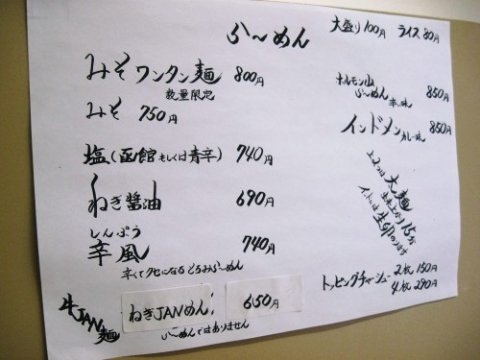 らーめん
大盛り100円 ライス80円
みそワンタン麺 800円
数量限定
みそ 750円
塩(函館もしくは青辛) 740円
ねぎ醤油 690円
しんぷう
辛風 740円
辛くてクセになるとろみらーめん
牛JAN麺
ねぎJANめん 650円
らーめんではありません
ホルモン山
らーめん 辛味 850円
インドメン カレー味 850円
上2つは太麺
茹で上がり15分
トッピングチャーシュー 2枚150円
4枚290円